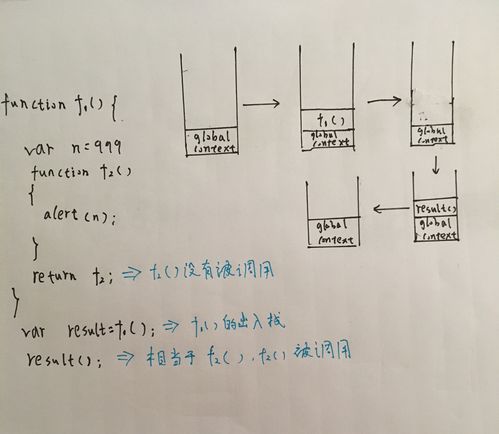 function f1() {
var n=999
function f2()
{
alert(n);
}
return f2; ⇒ f2()没有被调用
}
var result=f1(); ⇒ f1()的出入栈
result(); ⇒ 相当于f2(),f2()被调用
global context
f1()
global context
global context
result()
global context
global context